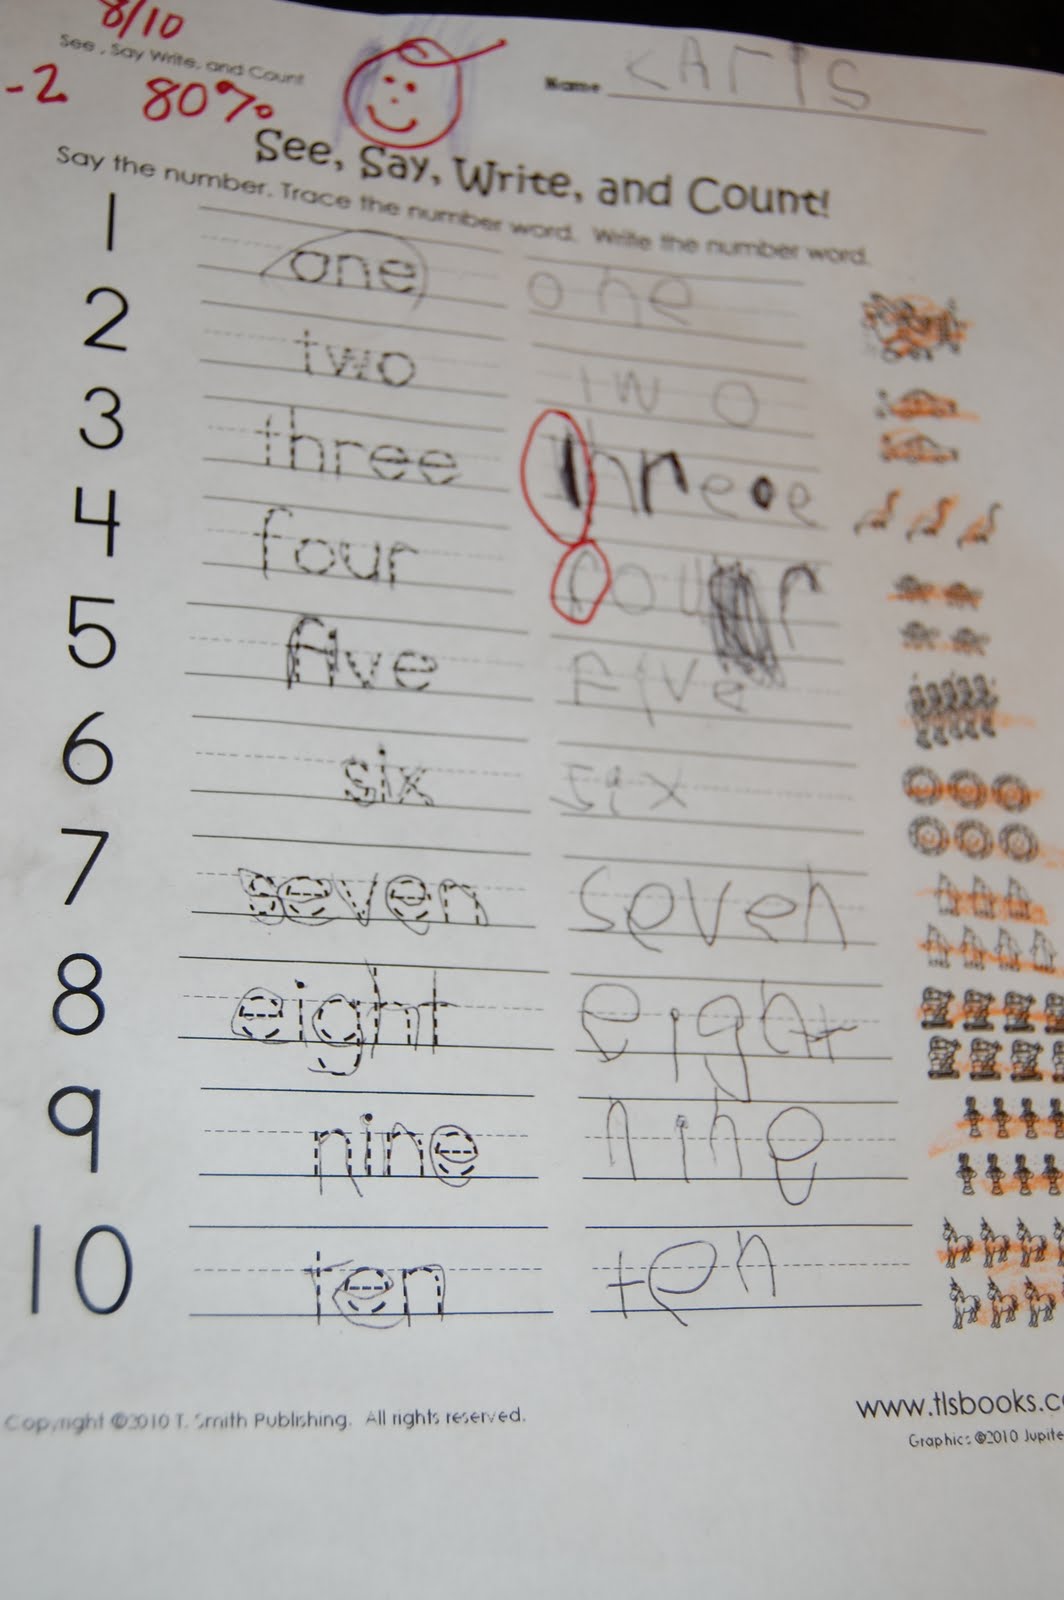 8/10
See, Say Write, and Count
-2 80%
Name KArIS
See, Say, Write, and Count!
Say the number. Trace the number word. Write the number word.
1 one one
2 two two
3 three threee
4 four four
5 five Five
6 six six
7 seven seven
8 eight eight
9 nine nine
10 ten ten
Copyright ©2010 T. Smith Publishing. All rights reserved.
www.tlsbooks.co
Graphics ©2010 Jupite